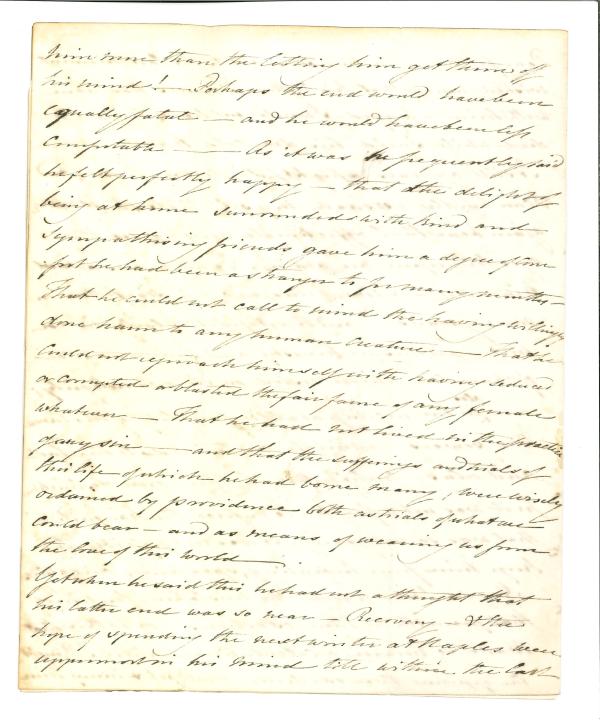 him more than the letting him get them off
his mind! — Perhaps the end would have been
equally fatal — and he would have been less
comfortable — As it was he frequently said
he felt perfectly happy — that the delight of
being at home surrounded with kind and
sympathising friends gave him a degree of com
fort he had been a stranger to for many months —
That he could not call to mind the having willingly
done harm to any human creature — That he
could not reproach himself with having seduced
or corrupted or blasted the fair fame of any female
whatever — That he had not lived in the practice
of any sin — and that the sufferings and trials of
this life of which he had borne many, were wisely
ordained by providence both as trials of what we
could bear — and as means of weaning us from
the love of this world.
Yet when he said this he had not a thought that
his latter end was so near — Recovery — & the
hope of spending the next winter at Naples were
uppermost in his mind till within the last